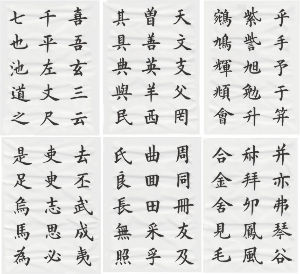 乎手予干算
紫訾旭勉升
鳩輝會
天文支父罔
曾善英羊西
其具典與民
喜吾玄三云
千平左丈尺
七也池道之
并亦弗琴谷
拜卯鳳風
合金舍見毛
周同冊友及
曲田采乎
氏良長無照
去丕武成夷
吏更志思必
是足烏馬為